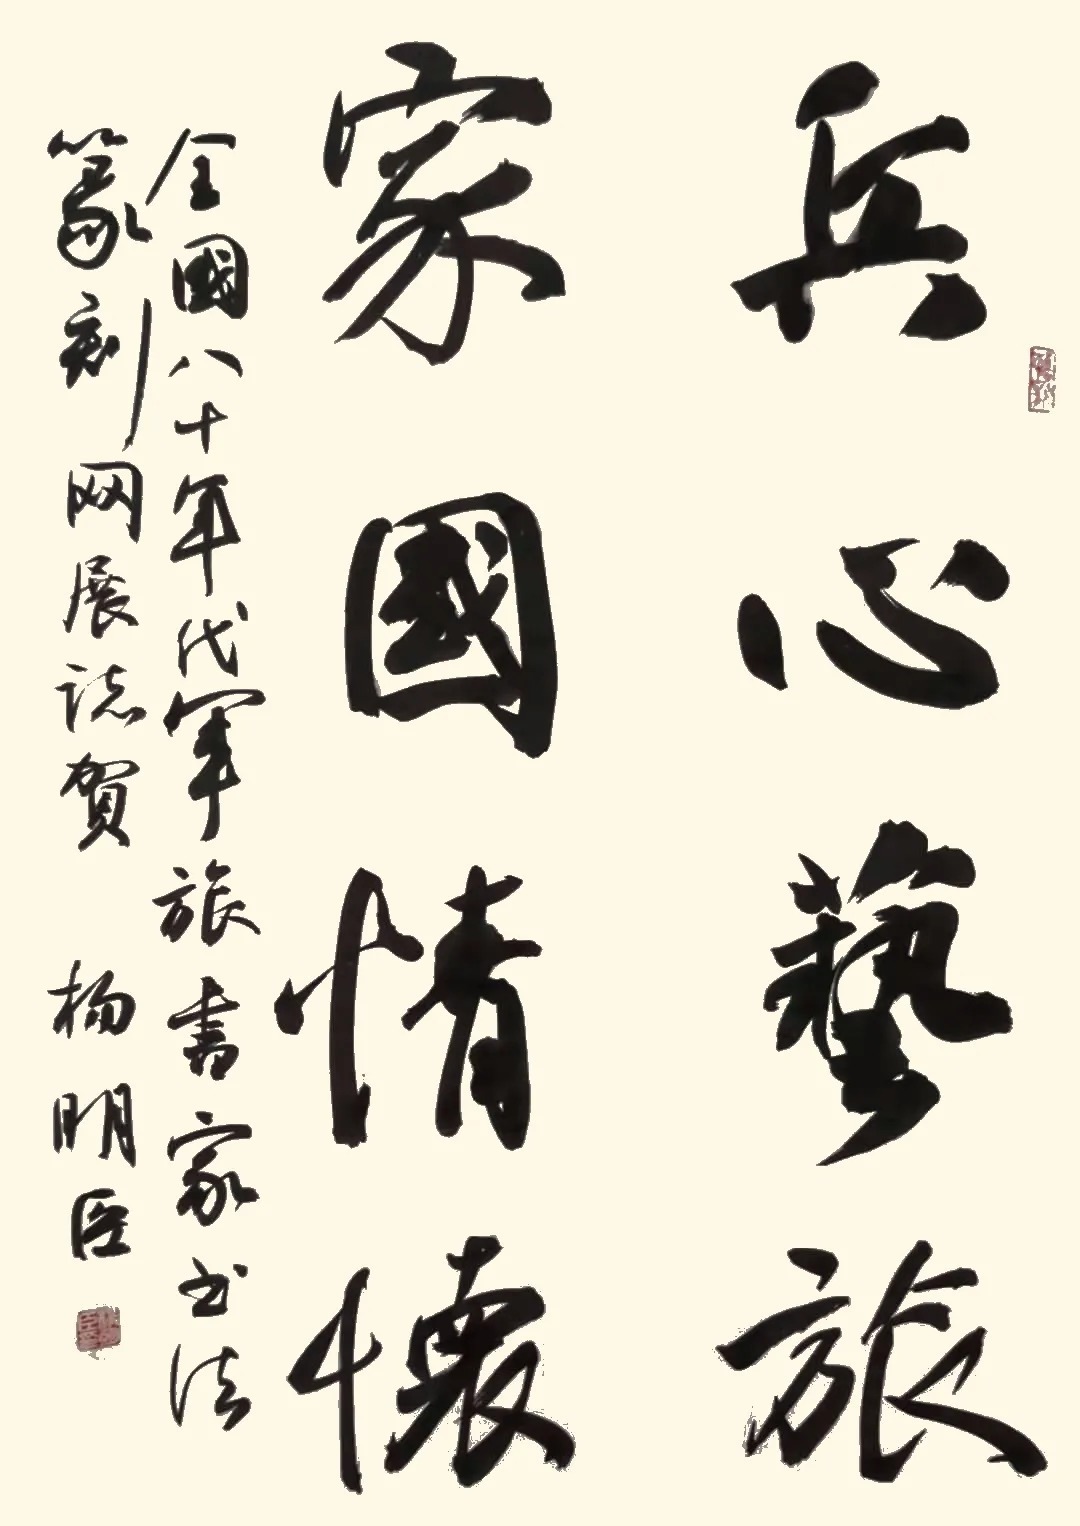 兵心藝旅
家國情懷
全國八十年代軍旅書家书法
篆刻网展誌贺 杨明臣